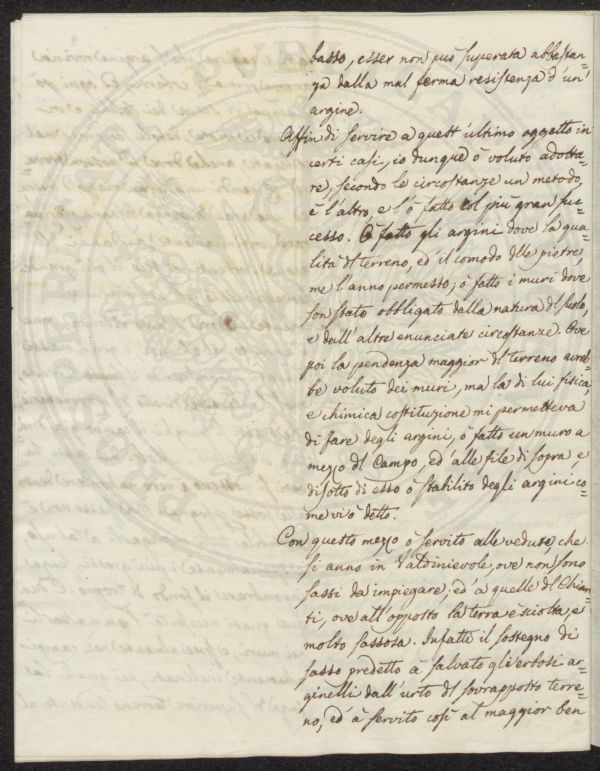 basso, esser non può superata abbastan=
za dalla mal ferma resistenza d'un'
argine.
Affin di servire a quest'ultimo oggetto in
certi casi, io dunque ò voluto adotta=
re, secondo le circostanze un metodo,
e l'altro, e l'ò fatto col più gran suc=
cesso. Ò fatto gli argini dove la qua=
lità dl terreno, ed' il comodo dlle pietre,
me l'anno permesso; ò fatto i muri dove
son stato obbligato dalla natura dl suolo,
e dall'altre enunciate circostanze. Ove
poi la pendenza maggior dl terreno avreb=
be voluto dei muri, ma la di lui fisica,
e chimica costituzione mi permetteva
di fare degli argini, ò fatto un muro a
mezzo dl Campo, ed' alle file di sopra, e
di sotto di esso ò stabilito degli argini co=
me vi ò detto.
Con questo mezzo ò servito alle vedute, che
si anno in Valdinievole, ove non sono
sassi da impiegare; ed' a quelle dl Chian=
ti, ove all'opposto la terra è sciolta, e
molto sassosa. Infatti il sostegno di
sasso predetto à salvato gli erbosi ar=
ginelli dall'urto dl sovrapposto terre=
no, ed' à servito così al maggior ben